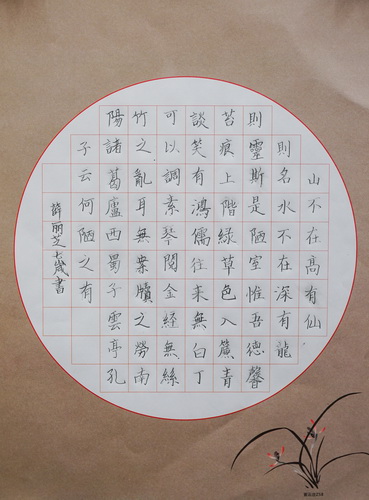 山不在高有仙
則名水不在深有龍
則靈斯是陋室惟吾德馨
苔痕上階綠草色入簾青
談笑有鴻儒往来無白丁
可以調素琴閱金經無絲
竹之亂耳無案牘之勞南
陽諸葛廬西蜀子雲亭孔
子云何陋之有
薛丽芝七歲書